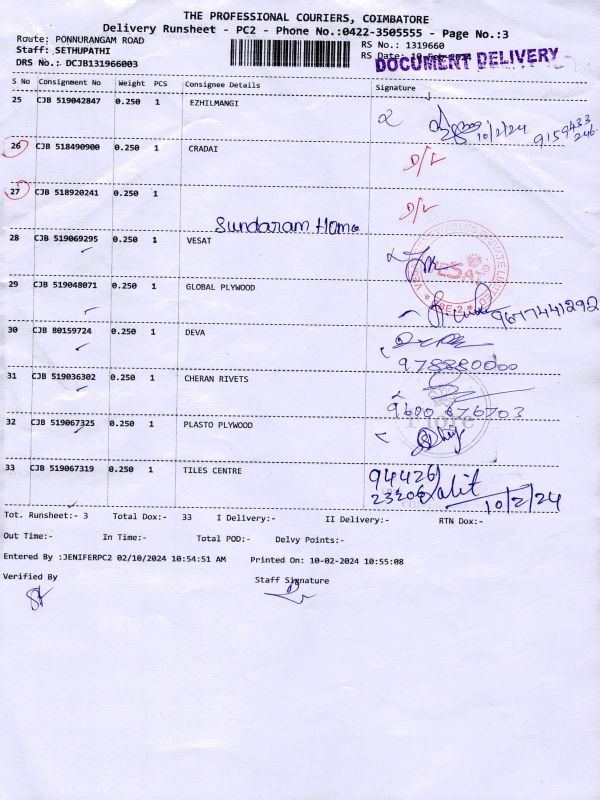 THE PROFESSIONAL COURIERS, COIMBATORE
Delivery Runsheet - PC2 - Phone No.:0422-3505555 - Page No.:3
Route: PONNURANGAM ROAD
RS No.: 1319660
Staff: SETHUPATHI
RS Date: 10-Feb-2024
DOCUMENT DELIVERY
DRS No.: DCJB131966003
S No Consignment No Weight PCS Consignee Details Signature
25 CJB 519042847 0.250 1 EZHILMANGI
10/2/24
26 CJB 518490900 0.250 1 CRADAI D/L
27 CJB 518920241 0.250 1 D/L
Sundaram Home
28 CJB 519069295 0.250 1 VESAT
VESAT
29 CJB 519048071 0.250 1 GLOBAL PLYWOOD
9677441292
30 CJB 80159724 0.250 1 DEVA
978880000
31 CJB 519036302 0.250 1 CHERAN RIVETS
9600 676703
32 CJB 519067325 0.250 1 PLASTO PLYWOOD
33 CJB 519067319 0.250 1 TILES CENTRE
94426
Lalit
10/2/24
Tot. Runsheet:- 3 Total Dox:- 33 I Delivery:- II Delivery:- RTN Dox:-
Out Time:- In Time:- Total POD:- Delvy Points:-
Entered By :JENIFERPC2 02/10/2024 10:54:51 AM Printed On: 10-02-2024 10:55:08
Verified By Staff Signature